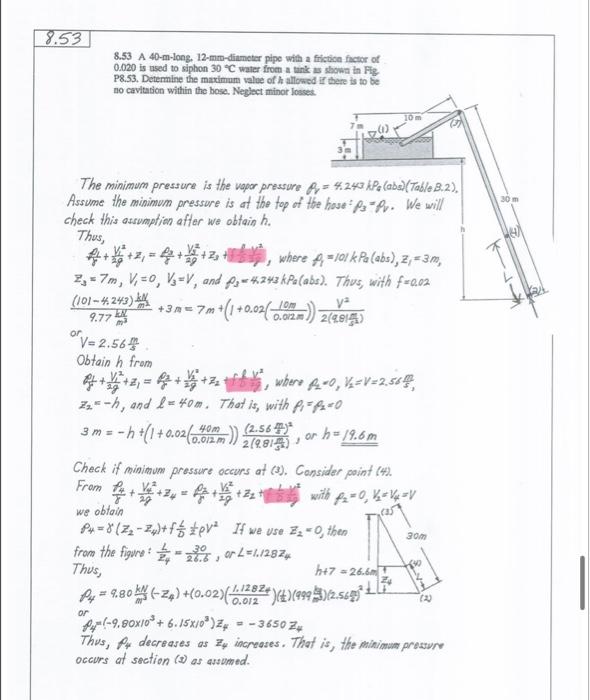 8.53
8.53 A 40-m-long, 12-mm-diameter pipe with a friction factor of
0.020 is used to siphon 30 °C water from a tank as shown in Fig.
P8.53. Determine the maximum value of h allowed if there is to be
no cavitation within the hose. Neglect minor losses.
10 m
7 m
(1)
(3)
3 m
30 m
h
(4)
L
(2)
The minimum pressure is the vapor pressure pᵥ = 4.243 kPa (abs) (Table B.2).
Assume the minimum pressure is at the top of the hose: p₃ = pᵥ. We will
check this assumption after we obtain h.
Thus,
p₁/γ + V₁²/2g + z₁ = p₃/γ + V₃²/2g + z₃ + f l/D V²/2g, where p₁ = 101 kPa (abs), z₁ = 3m,
z₃ = 7m, V₁ = 0, V₃ = V, and p₃ = 4.243 kPa (abs). Thus, with f = 0.02
(101 - 4.243) kN/m² / 9.77 kN/m³ + 3m = 7m + (1 + 0.02 (10m / 0.012m)) V² / 2(9.81 m/s²)
or
V = 2.56 m/s.
Obtain h from
p₁/γ + V₁²/2g + z₁ = p₂/γ + V₂²/2g + z₂ + f l/D V²/2g, where p₂ = 0, V₂ = V = 2.56 m/s,
z₂ = -h, and l = 40m. That is, with p₁ = p₂ = 0
3 m = -h + (1 + 0.02 (40m / 0.012m)) (2.56 m/s)² / 2(9.81 m/s²), or h = 19.6 m
Check if minimum pressure occurs at (3). Consider point (4).
From p₄/γ + V₄²/2g + z₄ = p₂/γ + V₂²/2g + z₂ + f l/D V²/2g with p₂ = 0, V₂ = V₄ = V
we obtain
p₄ = γ (z₂ - z₄) + f l/D ½ρV² If we use z₂ = 0, then
from the figure: L/z₄ = 30/26.6, or L = 1.128 z₄
Thus,
(3)
30m
h+7 = 26.6m
(4)
z₄
L
(2)
p₄ = 9.80 kN/m³ (-z₄) + (0.02) (1.128 z₄ / 0.012) (½) (999 kg/m³) (2.56 m/s)²
or
p₄ = (-9.80×10³ + 6.15×10³) z₄ = -3650 z₄
Thus, p₄ decreases as z₄ increases. That is, the minimum pressure
occurs at section (3) as assumed.